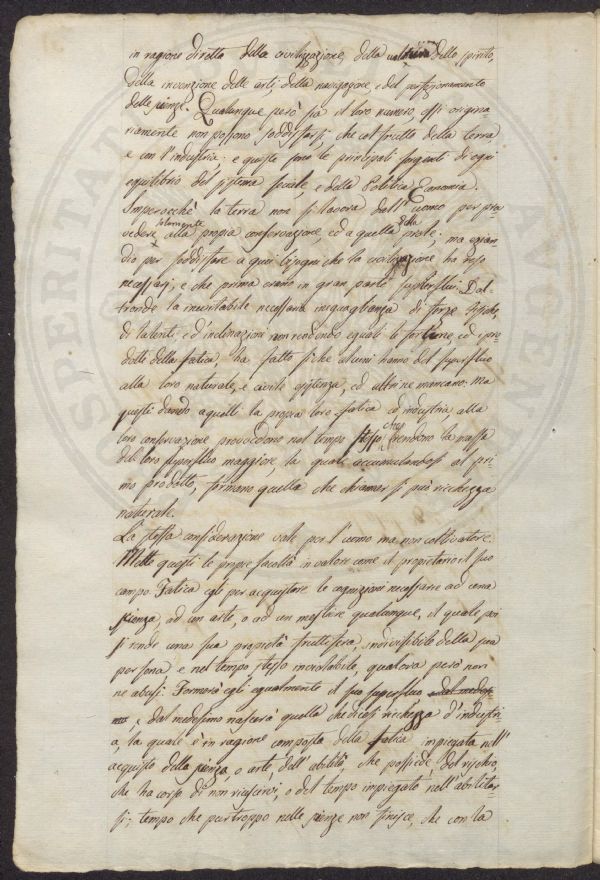 in ragione diretta della civilizzazione, della dello spirito,
della invenzione delle arti, della navigazione, e del perfezionamento
delle scienze. Qualunque però sia il loro numero, essi origina-
riamente non possono soddisfarsi, che col frutto della terra
e con l'industria: e queste sono le principali sorgenti di ogni
equilibrio del sistema sociale, e della Politica Economia.
Imperocchè la terra non si lavora dall'Uomo per pro-
vedere solamente alla propria conservazione, ed a quella della prole; ma ezian-
dio per soddisfare a quei bisogni che la civilizzazione ha reso
necessarj, e che prima erano in gran parte superflui. Dal-
tronde la inevitabile necessaria ineguaglianza di forze fisiche,
di talenti, e d'inclinazioni non rendendo eguali le fortune, ed i pro-
dotti della fatica, ha fatto sì che alcuni hanno del superfluo
alla loro naturale, e civile esistenza, ed altri ne mancano: Ma
questi dando a quelli la propria loro fatica ed industria alla
loro conservazione provvedono nel tempo stesso che rendono la massa
del loro superfluo maggiore, la quale accumulandosi al pri-
mo prodotto, formano quella che chiamar si può ricchezza
naturale.
La stessa considerazione vale per l'uomo ma non coltivatore.
Mette questi le proprie facoltà in valore come il proprietario il suo
campo. Fatica egli per acquistare le cognizioni necessarie ad una
scienza, od un arte, o ad un mestiere qualunque, il quale poi
si rende una sua proprietà fruttifera, indivisibile della sua
persona, e nel tempo stesso inviolabile, qualora però non
ne abusi. Formerà egli egualmente il suo superfluo dal medesi-
mo e dal medesimo nascerà quella che dicesi ricchezza d'industri-
a, la quale è in ragione composta della fatica impiegata nell'
acquisto della scienza, o arte, dell'abilità, che possiede, del rischio,
che ha corso di non riuscirvi, o del tempo impiegato nell'abilitar-
si; tempo che purtroppo nelle scienze non finisce, che con la